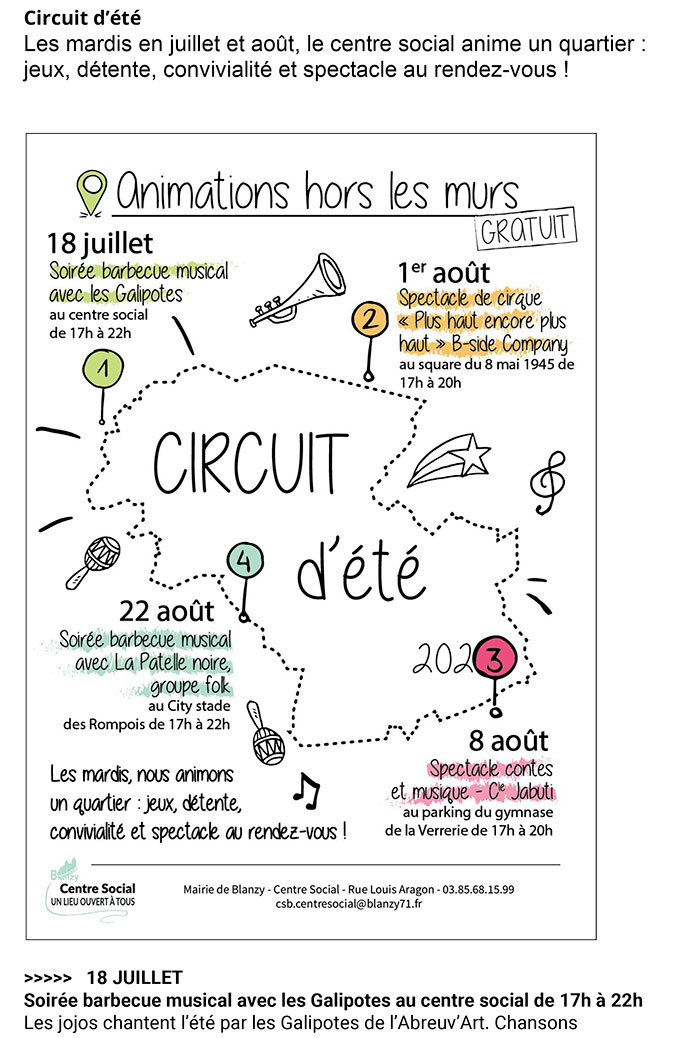 Circuit d'été
Les mardis en juillet et août, le centre social anime un quartier :
jeux, détente, convivialité et spectacle au rendez-vous !
Animations hors les murs
GRATUIT
18 juillet
Soirée barbecue musical
avec les Galipotes
au centre social
de 17h à 22h
1
1er août
Spectacle de cirque
« Plus haut encore plus
haut » B-side Company
au square du 8 mai 1945 de
17h à 20h
2
CIRCUIT
d'été
2023
4
22 août
Soirée barbecue musical
avec La Patelle noire,
groupe folk
au City stade
des Rompois de 17h à 22h
8 août
Spectacle contes
et musique - Cie Jabuti
au parking du gymnase
de la Verrerie de 17h à 20h
Les mardis, nous animons
un quartier : jeux, détente,
convivialité et spectacle au rendez-vous !
Blanzy
Centre Social
UN LIEU OUVERT À TOUS
Mairie de Blanzy - Centre Social - Rue Louis Aragon - 03.85.68.15.99
csb.centresocial@blanzy71.fr
>>>>> 18 JUILLET
Soirée barbecue musical avec les Galipotes au centre social de 17h à 22h
Les jojos chantent l'été par les Galipotes de l'Abreuv'Art. Chansons